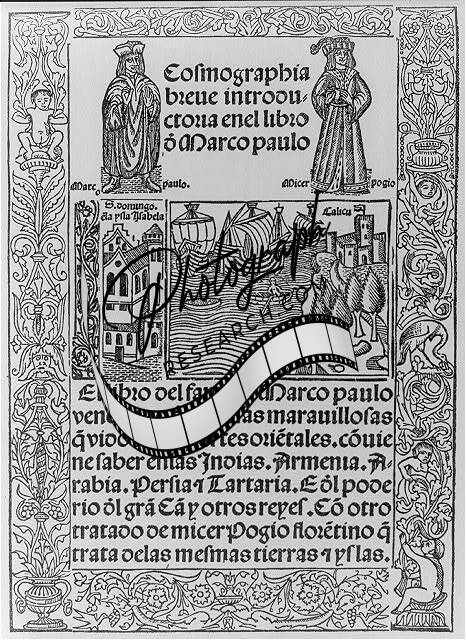 Cosmographia
breue introdu-
ctoria enel libro
ð Marco paulo
Marco paulo.
Micer pogio
S. domingo.
ẽla ysla Ysabela
Calicu
Photograph
RESEARCH.COM
El libro del Marco paulo
marauillosas
q̃ vido oriẽtales. cõuie
ne saber enlas Indias. Armenia. A-
rabia. Persia ⁊ Tartaria. E ðl pode
rio ðl grã Cã y otros reyes. Cõ otro
tratado de micer Pogio florẽtino q̃
trata delas mesmas tierras ⁊ yslas.